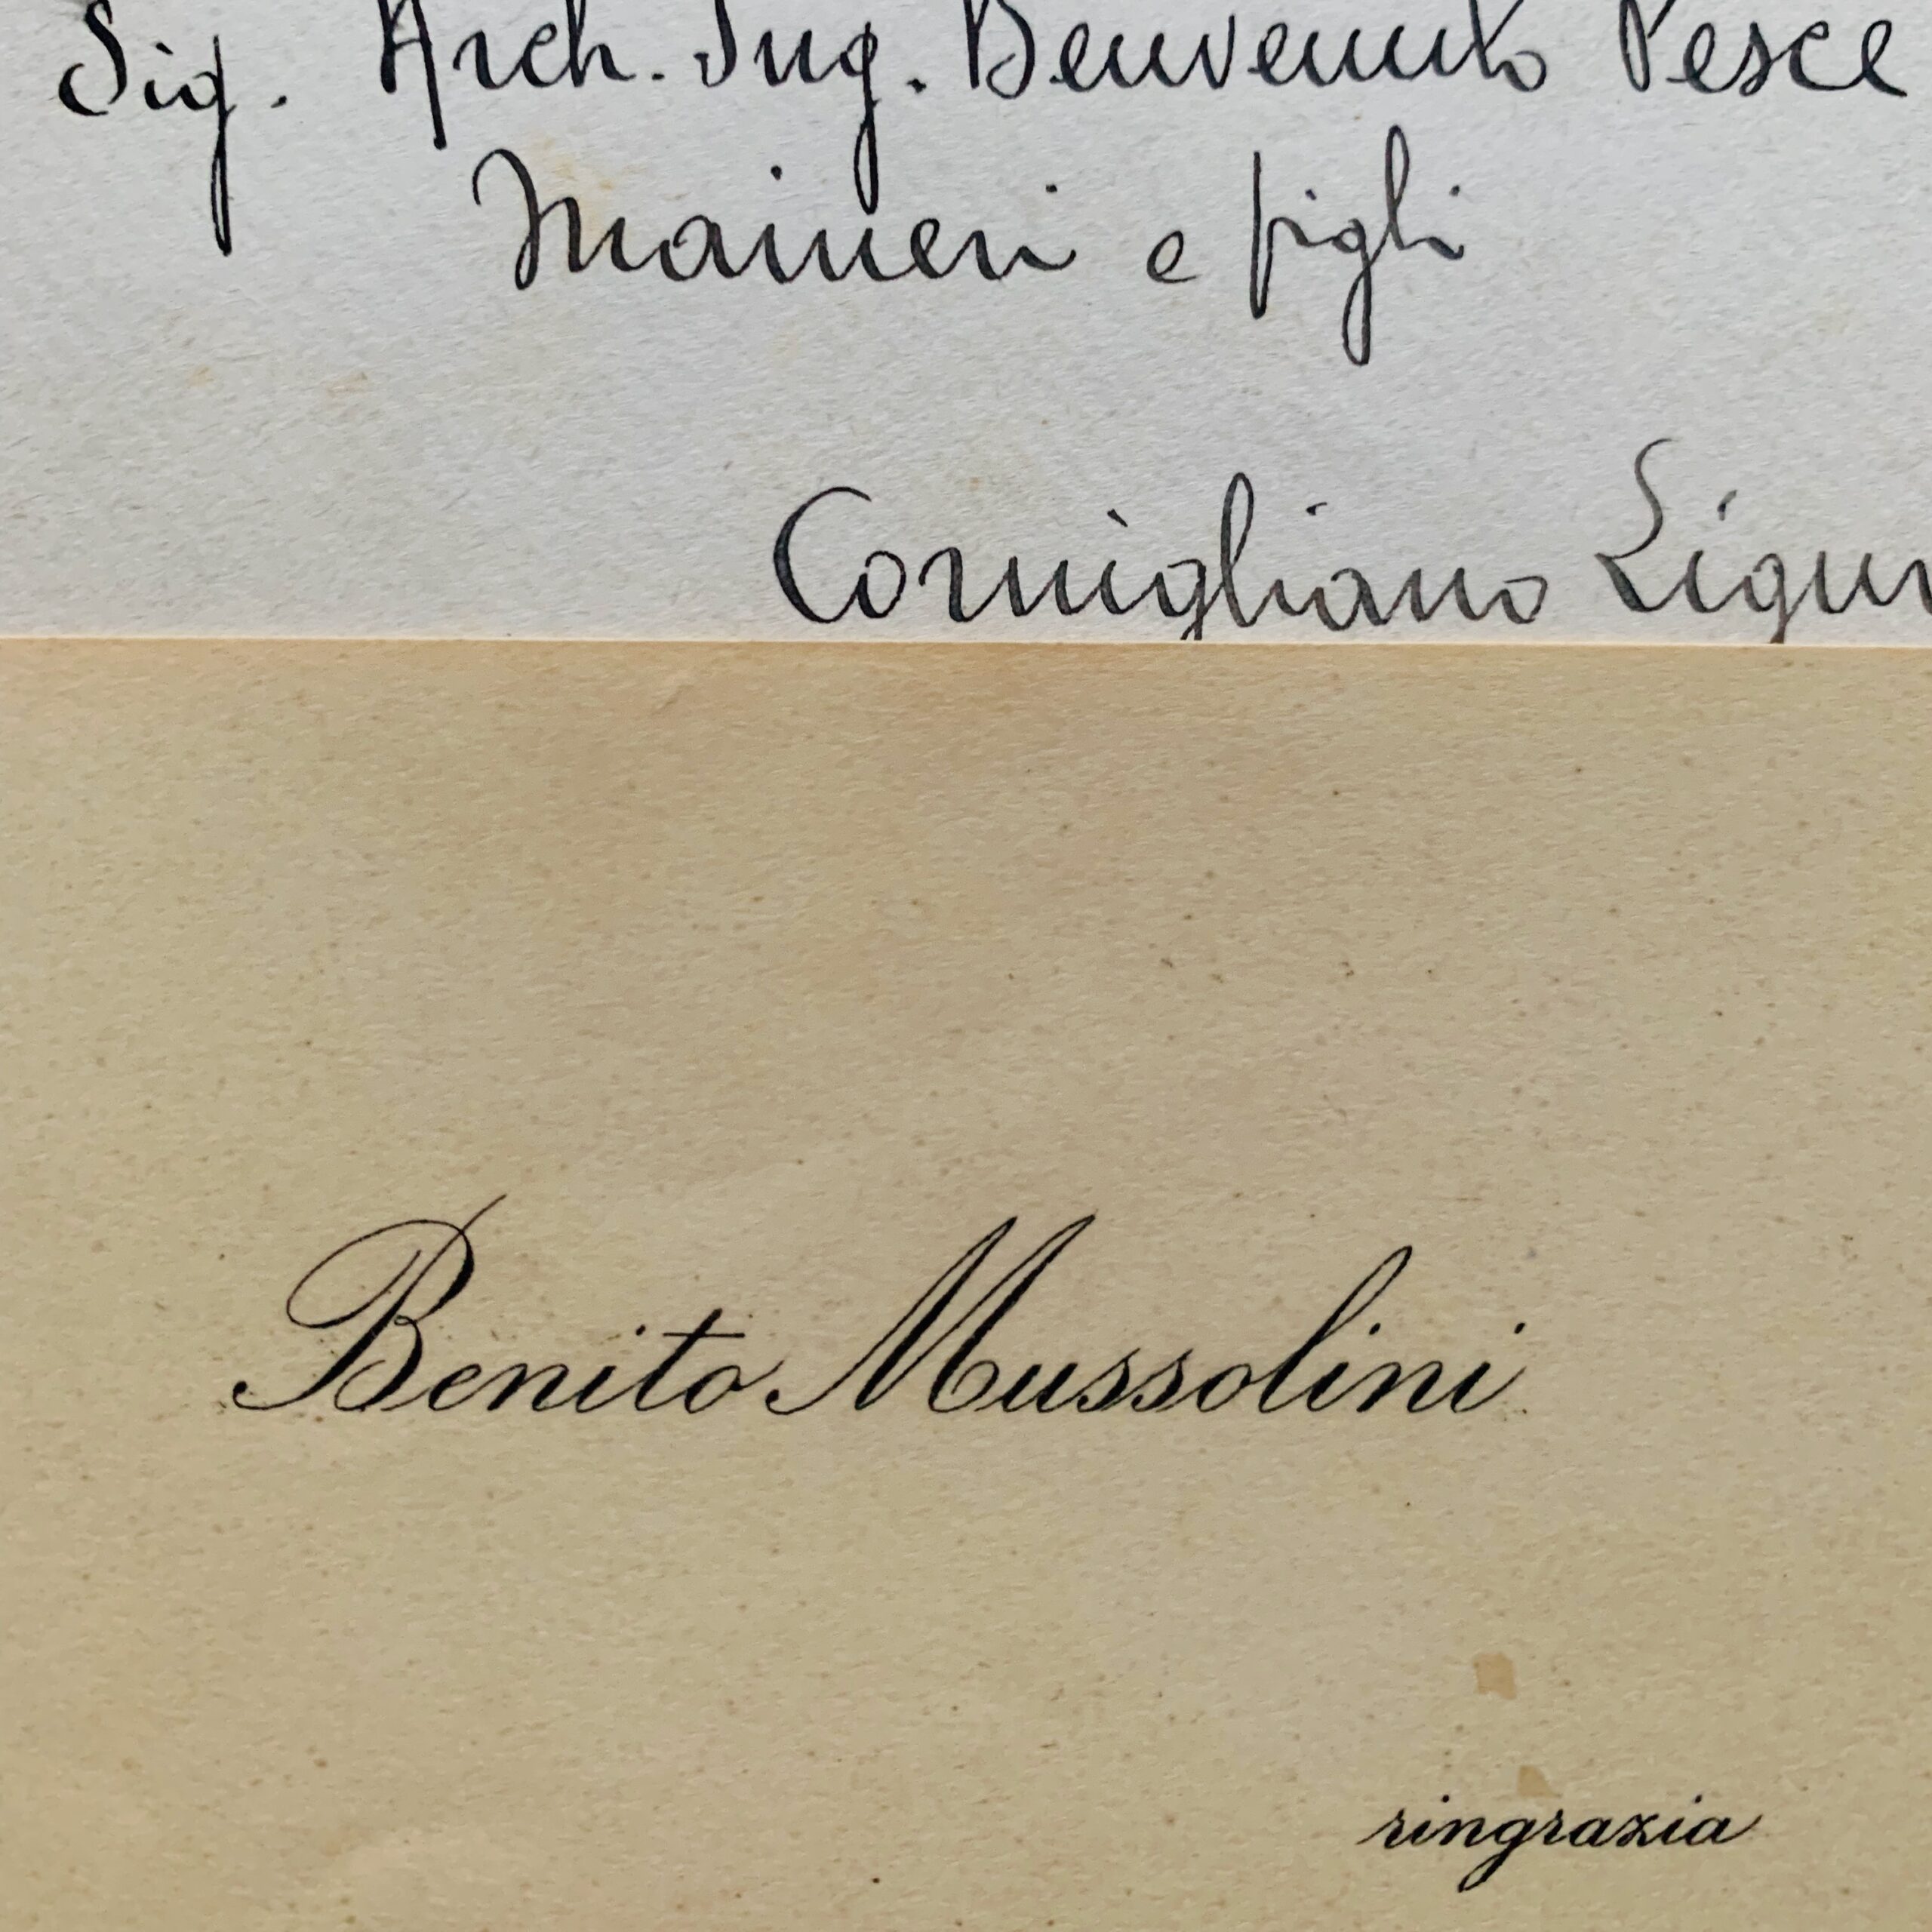 Sig. Arch. Ing. Benvenuto Pesce
Maineri e figli
Cornigliano Ligur
Benito Mussolini
ringrazia